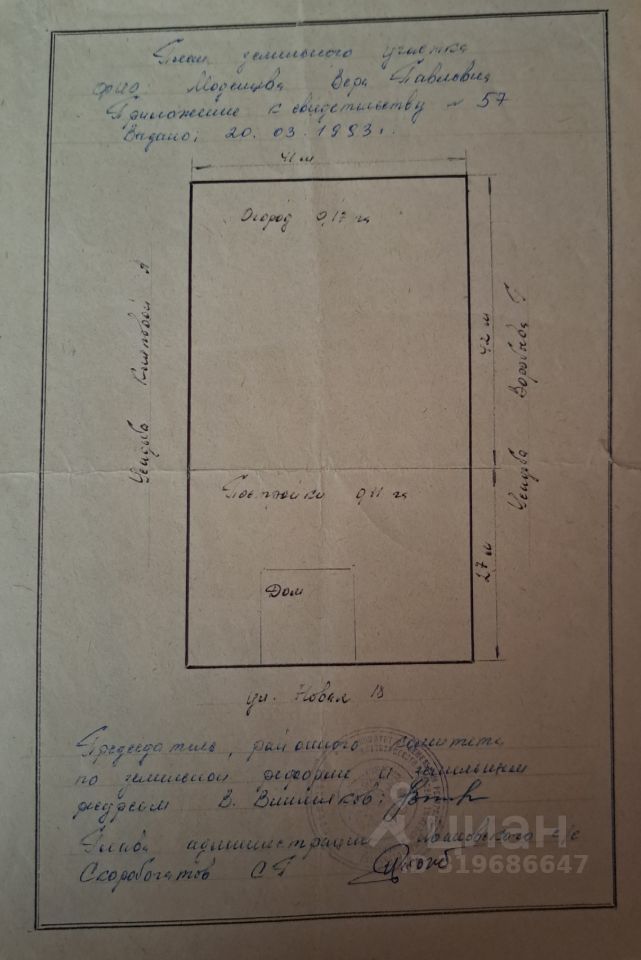 План земельного участка
фио: Вера Павловна
Приложение к свидетельству № 57
Выдано: 20. 03. 1993 г.
41 м
Огород 0,17 га
Усадьба А
42 м
Усадьба Воробьёва Г
Постройки 0,11 га
27 м
Дом
ул. Новая 18
Председатель, районного комитета
по земельной реформе и земельным
ресурсам В. Вишняков:
Глава администрации с/с
Скоробогатов С Г
циан
319686647